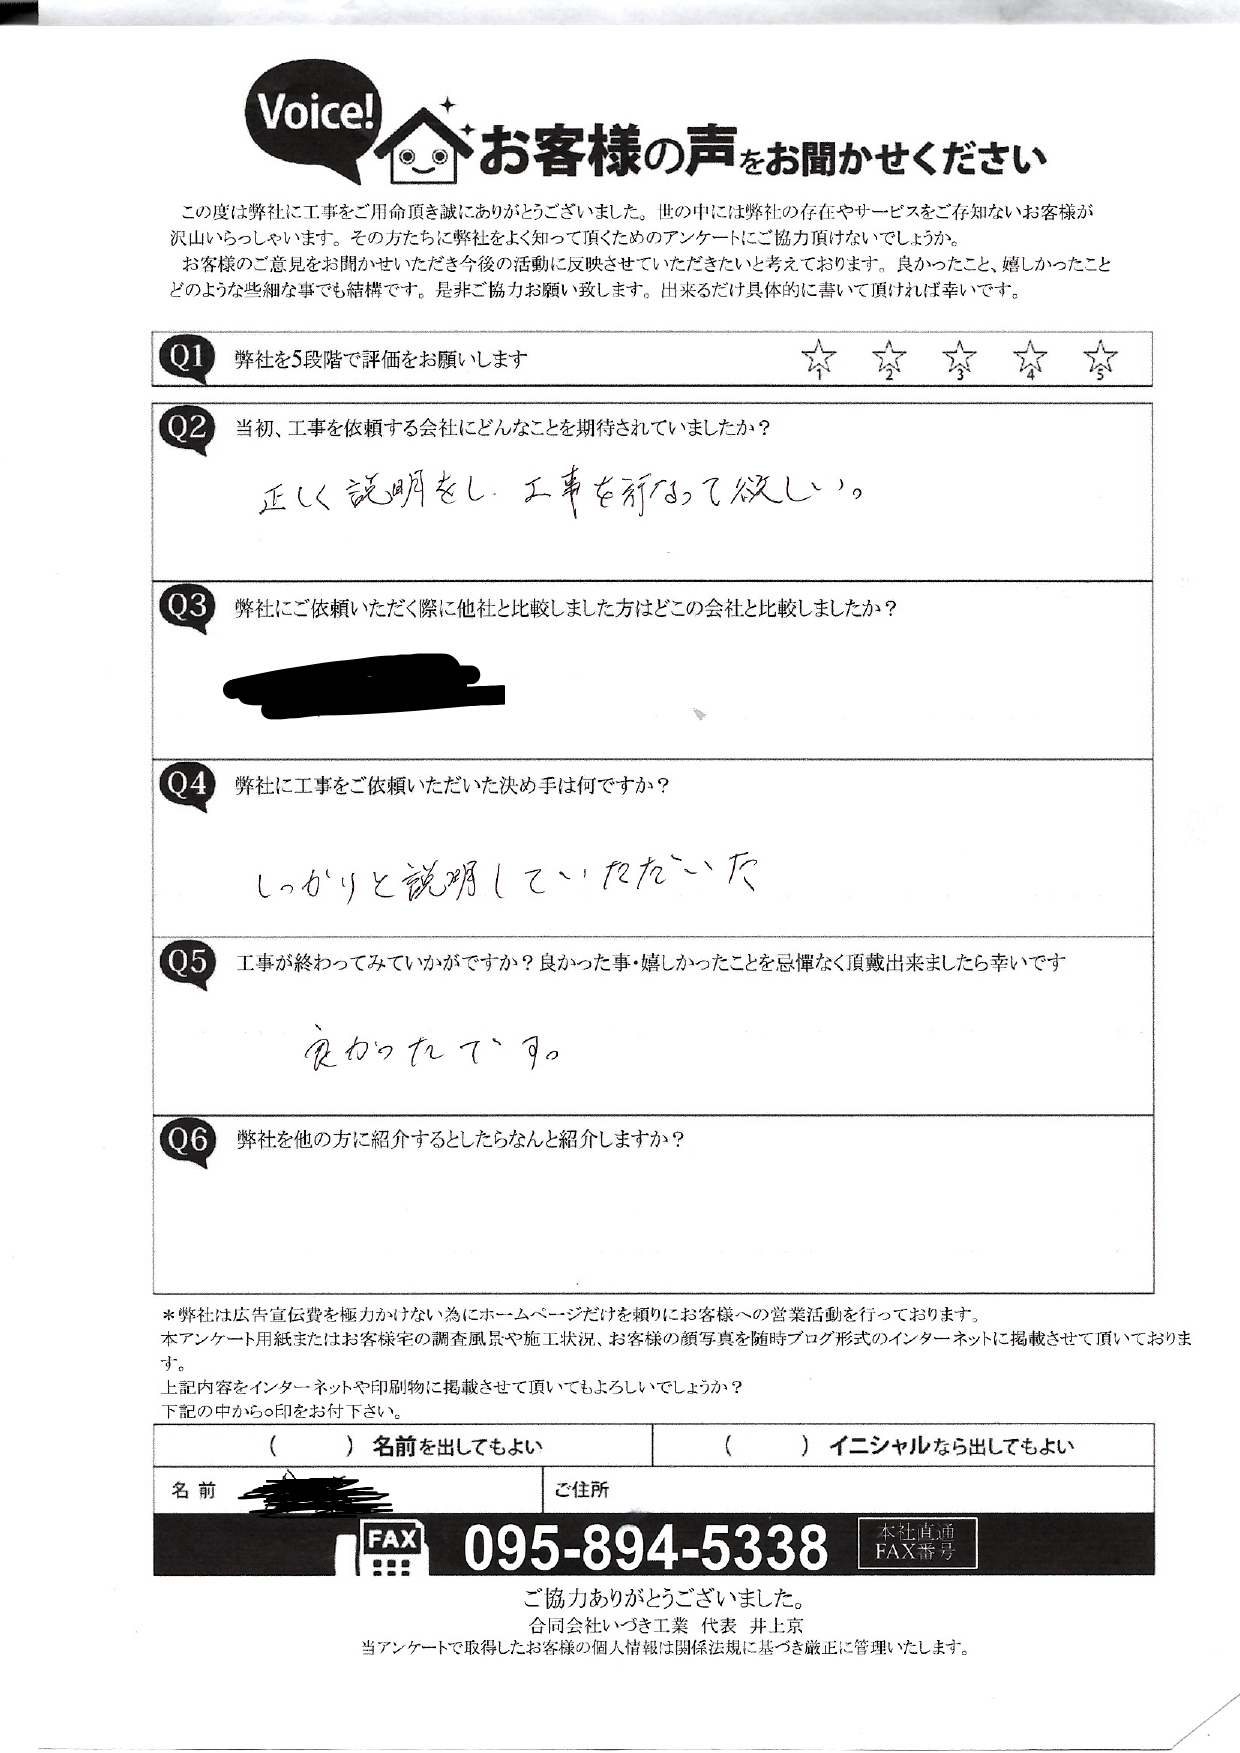 Voice!
お客様の声をお聞かせください
この度は弊社に工事をご用命頂き誠にありがとうございました。世の中には弊社の存在やサービスをご存知ないお客様が
沢山いらっしゃいます。その方たちに弊社をよく知って頂くためのアンケートにご協力頂けないでしょうか。
お客様のご意見をお聞かせいただき今後の活動に反映させていただきたいと考えております。良かったこと、嬉しかったこと
どのような些細な事でも結構です。是非ご協力お願い致します。出来るだけ具体的に書いて頂ければ幸いです。
Q1 弊社を5段階で評価をお願いします 1 2 3 4 5
Q2 当初、工事を依頼する会社にどんなことを期待されていましたか？
正しく説明をし、工事を行なって欲しい。
Q3 弊社にご依頼いただく際に他社と比較しました方はどこの会社と比較しましたか？
Q4 弊社に工事をご依頼いただいた決め手は何ですか？
しっかりと説明していただいた
Q5 工事が終わってみていかがですか？良かった事・嬉しかったことを忌憚なく頂戴出来ましたら幸いです
良かったです。
Q6 弊社を他の方に紹介するとしたらなんと紹介しますか？
＊弊社は広告宣伝費を極力かけない為にホームページだけを頼りにお客様への営業活動を行っております。
本アンケート用紙またはお客様宅の調査風景や施工状況、お客様の顔写真を随時ブログ形式のインターネットに掲載させて頂いておりま
す。
上記内容をインターネットや印刷物に掲載させて頂いてもよろしいでしょうか？
下記の中から○印をお付下さい。
（　　）名前を出してもよい （　　）イニシャルなら出してもよい
名前 ご住所
FAX 095-894-5338 本社直通
FAX番号
ご協力ありがとうございました。
合同会社いづき工業 代表 井上京
当アンケートで取得したお客様の個人情報は関係法規に基づき厳正に管理いたします。